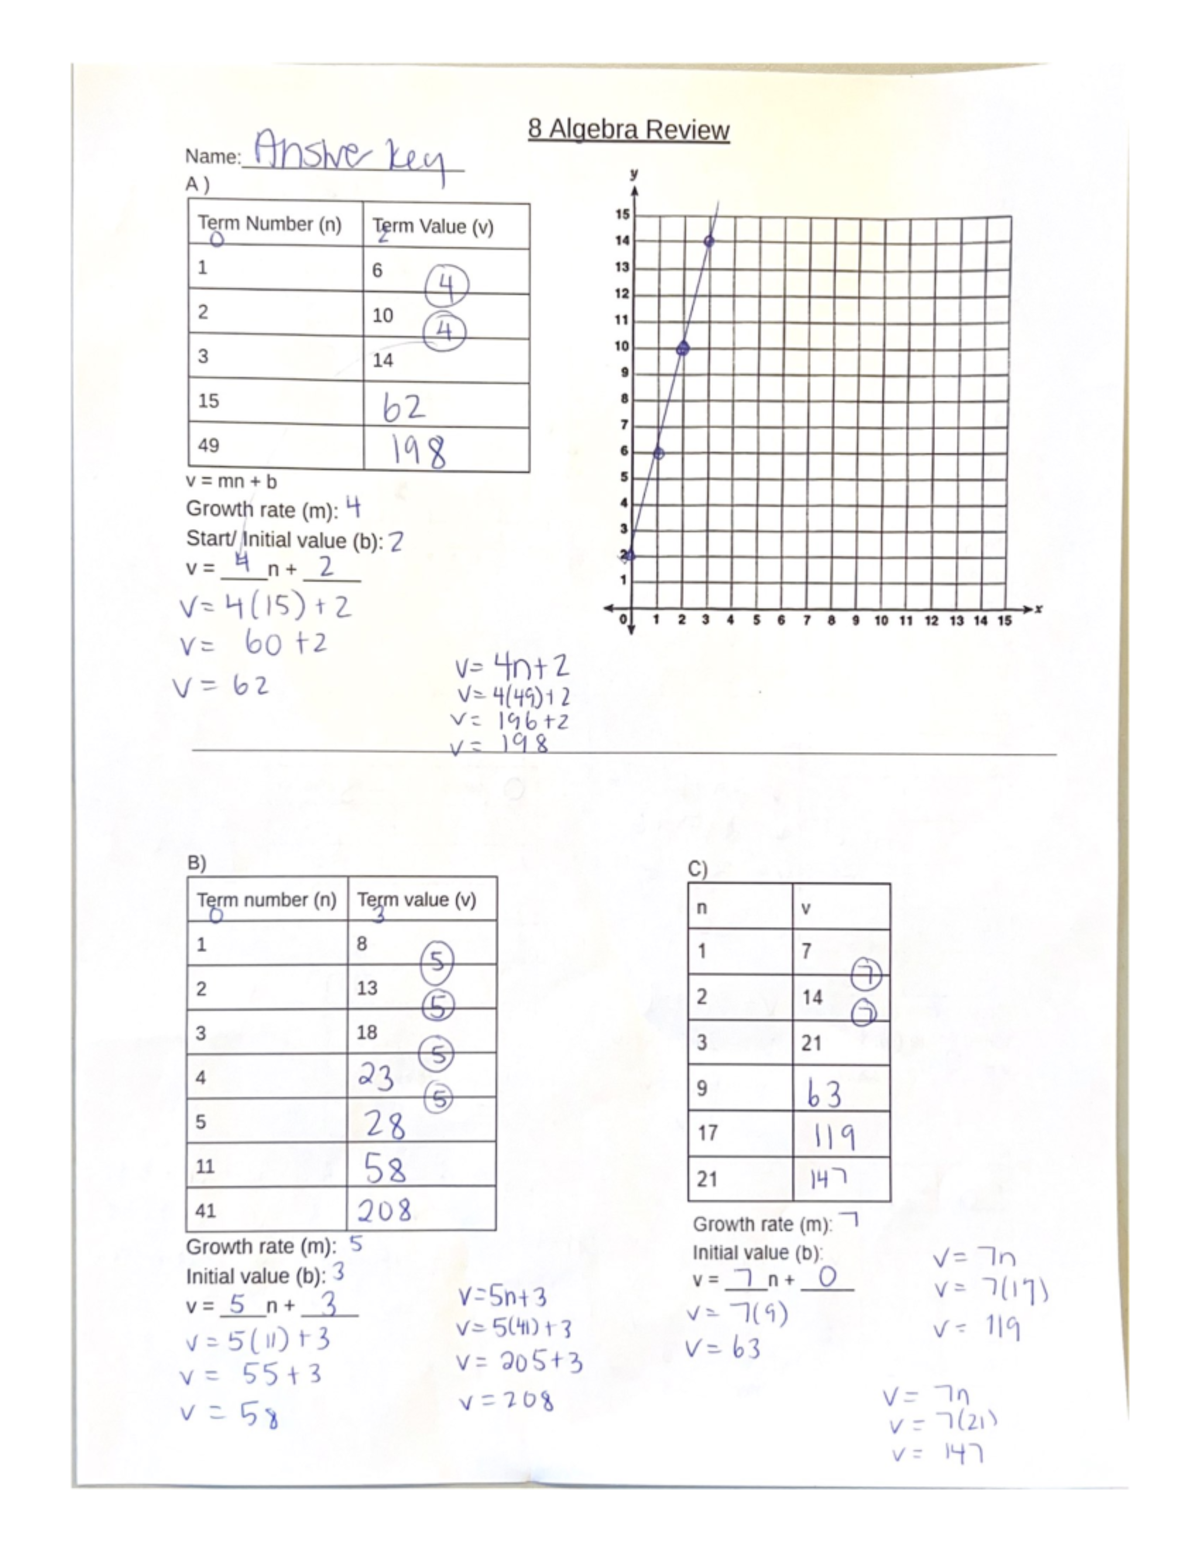 8 Algebra Review
Name: Answe key
A )
Term Number (n) Term Value (v)
0 2
1 6
4
2 10
4
3 14
15 62
49 198
v = mn + b
Growth rate (m): 4
Start/ Initial value (b): 2
v = 4 n + 2
V= 4(15) + 2
V= 60 +2
V = 62
V= 4n+2
V= 4(49)+2
V= 196+2
V= 198
y
15
14
13
12
11
10
9
8
7
6
5
4
3
2
1
0 1 2 3 4 5 6 7 8 9 10 11 12 13 14 15 x
B)
Term number (n) Term value (v)
0 3
1 8
5
2 13
5
3 18
5
4 23
5
5 28
11 58
41 208
Growth rate (m): 5
Initial value (b): 3
v = 5 n + 3
V = 5(11) + 3
V = 55 + 3
V = 58
V=5n+3
V= 5(41)+3
V= 205+3
V=208
C)
n v
1 7
7
2 14
7
3 21
9 63
17 119
21 147
Growth rate (m): 7
Initial value (b):
v = 7 n + 0
V= 7(9)
V= 63
V= 7n
V= 7(17)
V= 119
V= 7n
V = 7(21)
V= 147